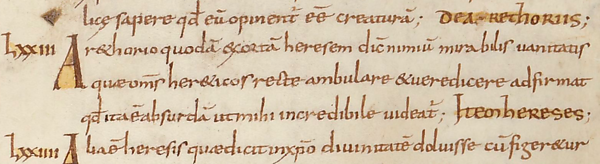 licę sapere qđ eū opinent̄ eē creaturā; DEA RETHORIIS;
lxxiii A r&horio quodā exortā heresem dic̄ nimiū mirabilis uanitatis
quae om̄s her&icos recte ambulare & uera dicere adfirmat
qđ ita ē absurdā ut mihi incredibile uideat̄; ITEM HERESES;
lxxiiii A lia ē heresis quae dicit in xp̄o diuinitatē doluisse cū figer&ur